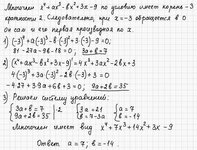 Многочлен x⁴+ax³-bx²+3x-9 по условию имеет корень -3
кратности 2. Следовательно, при x=-3 обращается в 0
он сам и его первая производная по x.
1) (-3)⁴+a(-3)³-b(-3)²+3(-3)-9=0;
81-27a-9b-18=0 ; 3a+b=7
2) (x⁴+ax³-bx²+3x-9)'=4x³+3ax²-2bx+3
4(-3)³+3a(-3)²-2b(-3)+3=0
-4·27+3·9a+6b+3=0; 9a+2b=35
3) Решаем систему уравнений:
3a+b=7 |·2 3a=21 a=7
9a+2b=35 b=-14
Многочлен имеет вид x⁴+7x³+14x²+3x-9
Ответ: a=7; b=-14